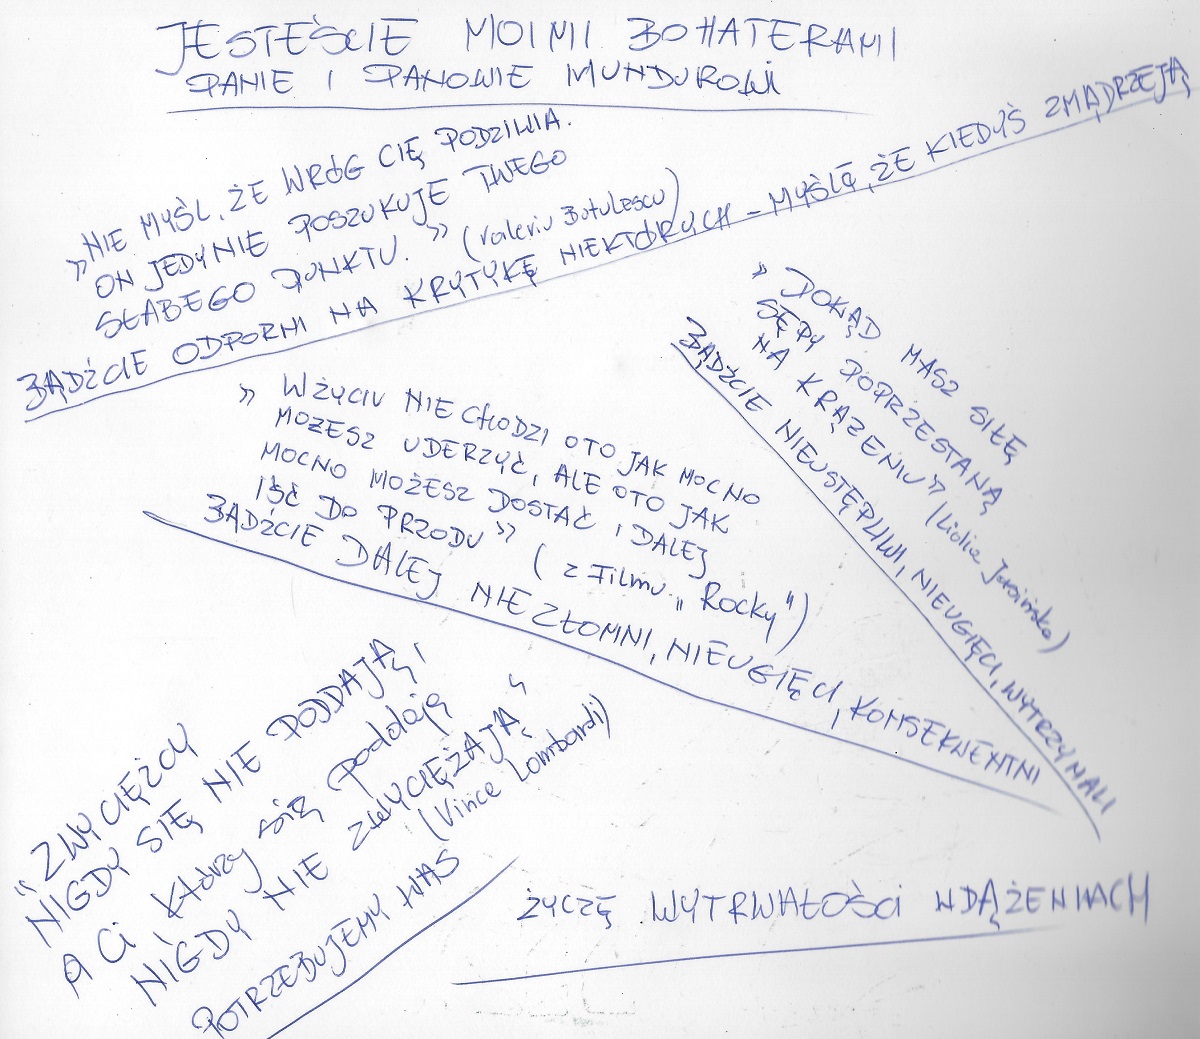 JESTEŚCIE MOIMI BOHATERAMI
PANIE I PANOWIE MUNDUROWI
"NIE MYŚL, ŻE WRÓG CIĘ PODZIWIA.
ON JEDYNIE POSZUKUJE TWEGO
SŁABEGO PUNKTU." (Valeriu Butulescu)
BĄDŹCIE ODPORNI NA KRYTYKĘ NIEKTÓRYCH - MYŚLĘ, ŻE KIEDYŚ ZMĄDRZEJĄ
"DOKĄD MASZ SIŁĘ
SĘPY POPRZESTANĄ
NA KRĄŻENIU" (Lidia Jasińska)
BĄDŹCIE NIEUSTĘPLIWI, NIEUGIĘCI, WYTRZYMALI
"W ŻYCIU NIE CHODZI OTO JAK MOCNO
MOŻESZ UDERZYĆ, ALE OTO JAK
MOCNO MOŻESZ DOSTAĆ I DALEJ
IŚĆ DO PRZODU" (z Filmu "Rocky")
BĄDŹCIE DALEJ NIEZŁOMNI, NIEUGIĘCI, KONSEKWENTNI
"ZWYCIĘZCY
NIGDY SIĘ NIE PODDAJĄ,
A Ci którzy się poddają
NIGDY NIE ZWYCIĘŻAJĄ"
(Vince Lombardi)
POTRZEBUJEMY WAS
ŻYCZĘ WYTRWAŁOŚCI W DĄŻENIACH